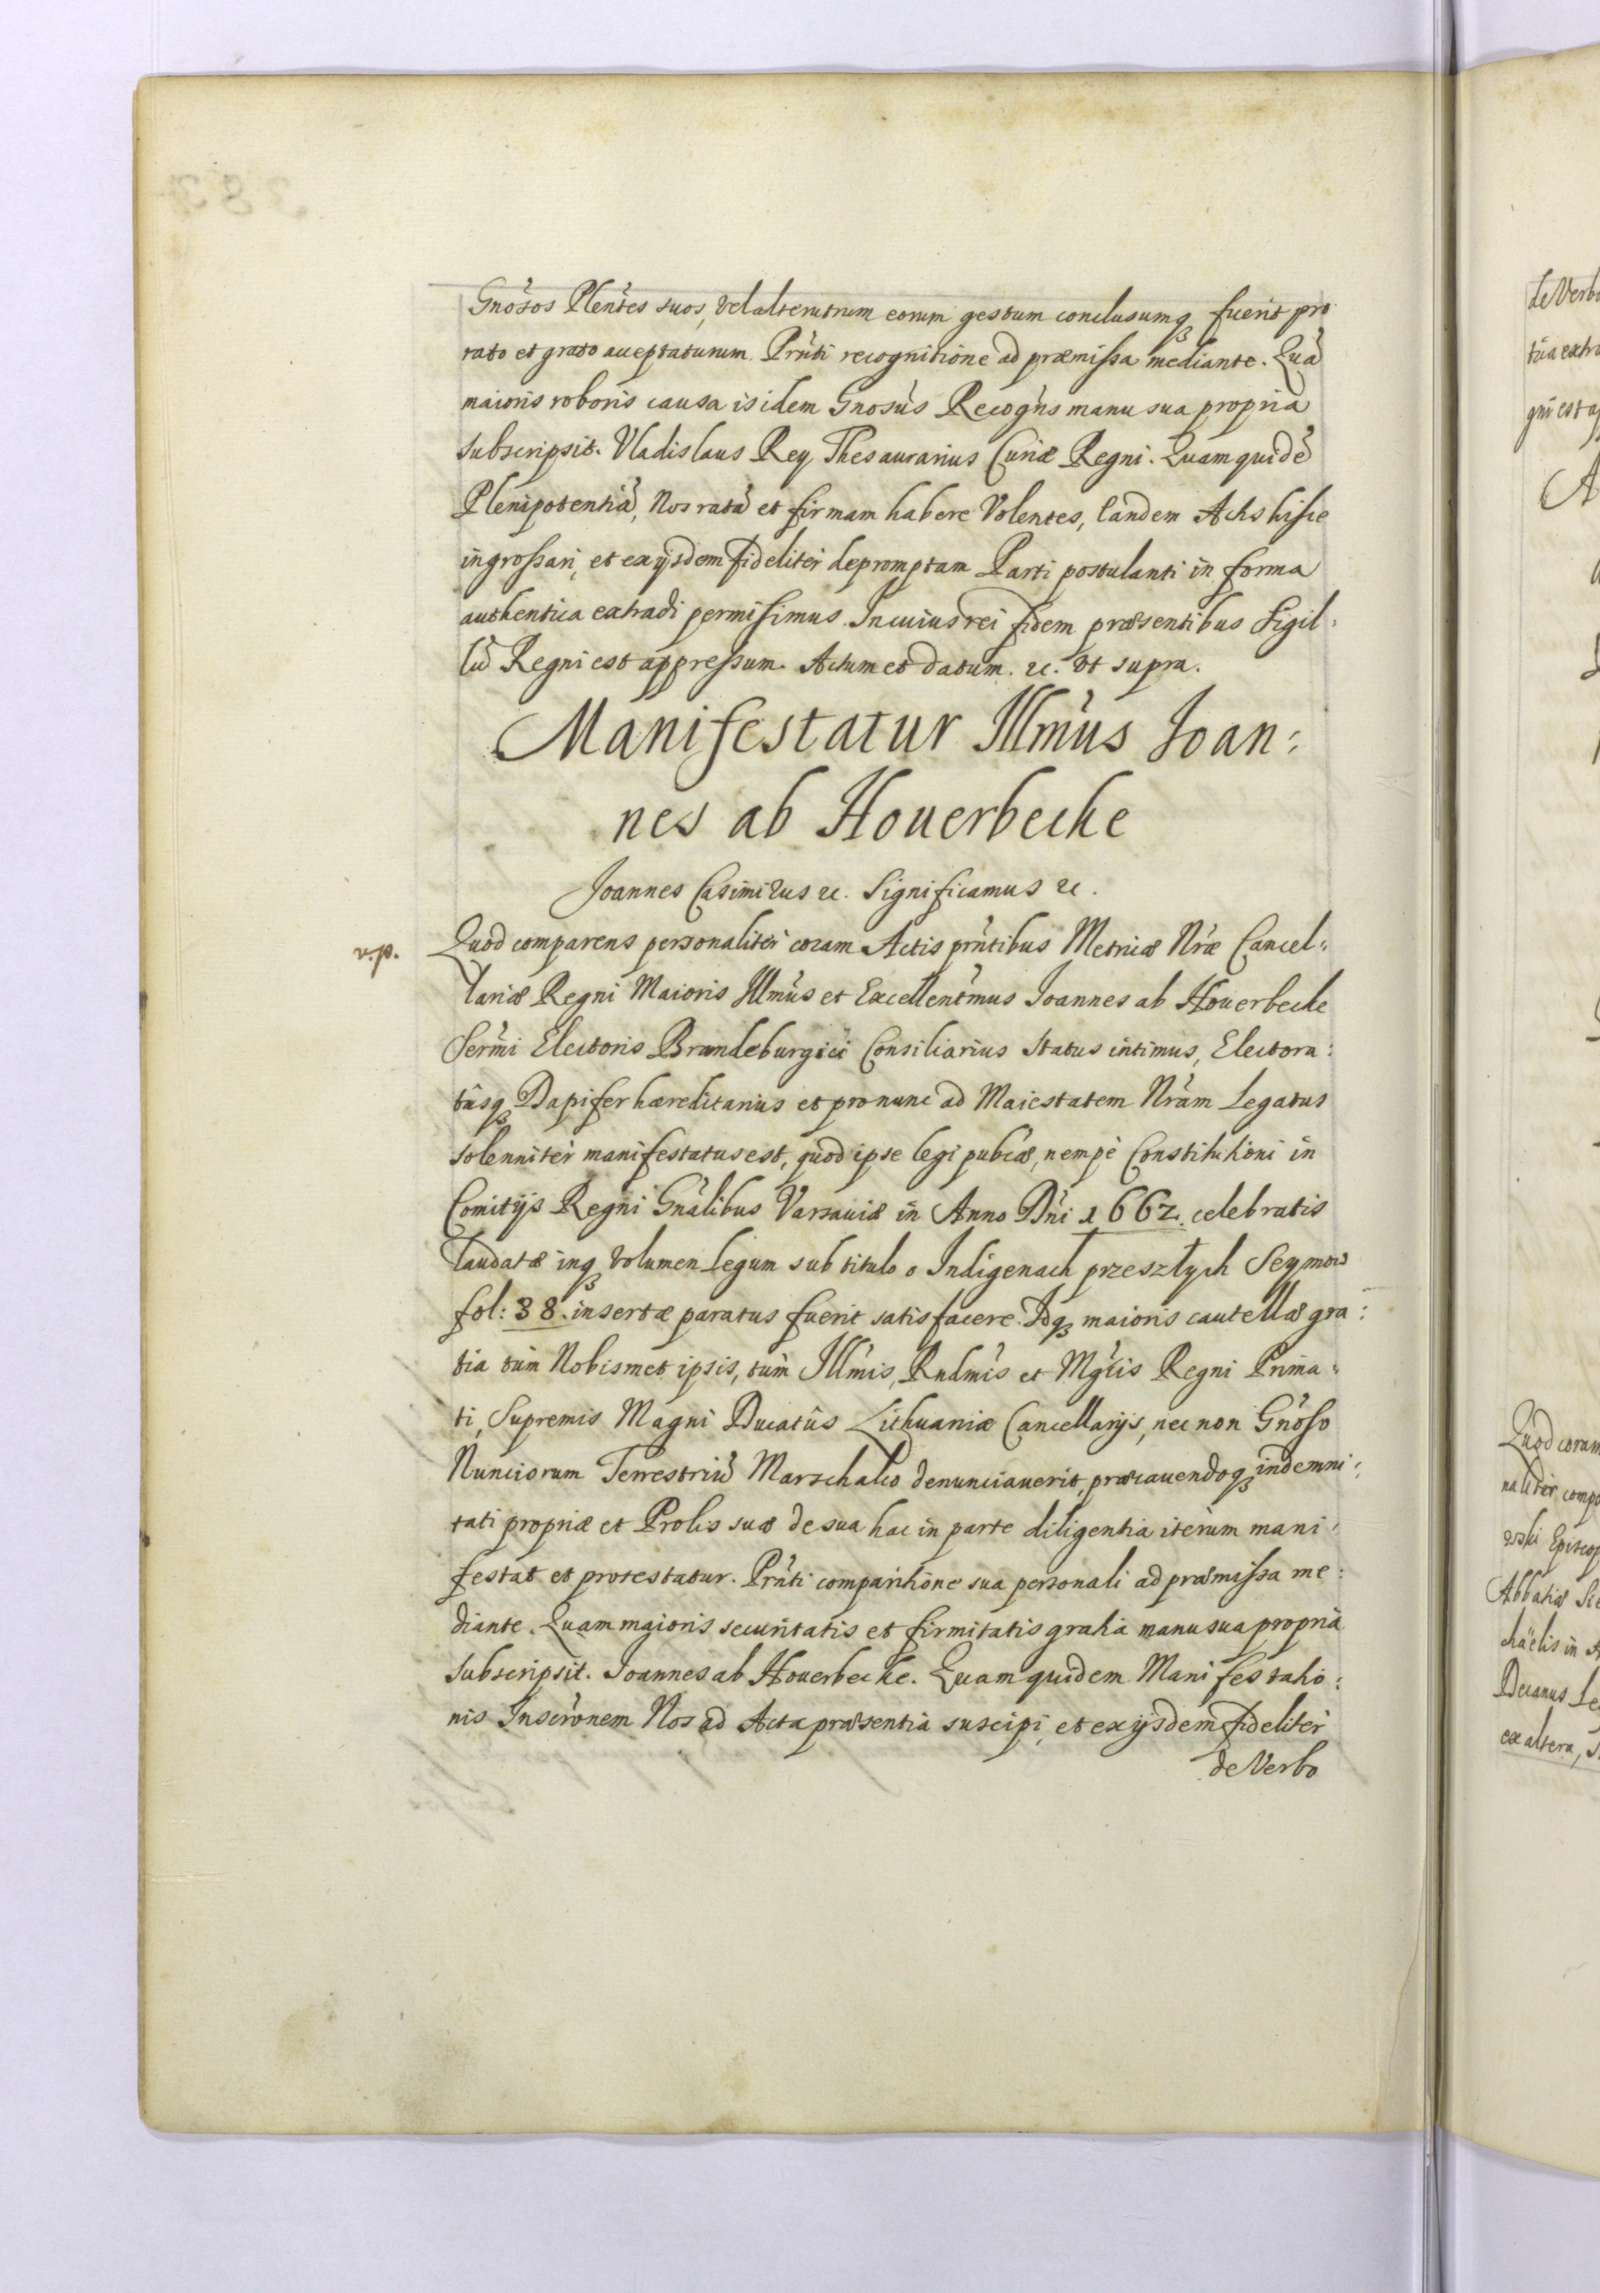 Gnosos Plentes suos, vel alterutrum eorum gestum conclusumq fuerit pro
rato et grato acceptaturum. Prnti recognitione ad præmissa mediante. Quã
maioris roboris causa isidem Gnosus Recogns manu sua propria
subscripsit. Vladislaus Rey Thesaurarius Curiæ Regni. Quam quidẽ
Plenipotentiã, Nos ratã et firmam habere Volentes, eandem Actis hisce
ingrossari, et ex ijsdem fideliter depromptam Parti postulanti in forma
authentica extradi permisimus. In cuius rei fidem præsentibus Sigil-
lũ Regni est appressum. Actum et datum. &c. Vt supra.
Manifestatur Illmus Joan:
nes ab Houerbecke
Joannes Casimirus &c. Significamus &c.
v.p.
Quod comparens personaliter coram Actis prntibus Metricæ Nræ Cancel-
lariæ Regni Maioris Illmus et Excellentmus Joannes ab Houerbecke
Sermi Electoris Brandeburgici Consiliarius Status intimus, Electora:
tûsq Dapifer hæreditarius et pro nunc ad Maiestatem Nram Legatus
solenniter manifestatus est, quod ipse legi pubcæ, nempè Constitutioni in
Comitijs Regni Gnalibus Varsauiæ in Anno Dni 1662. celebratis
laudatæ inq Volumen Legum sub titulo o Indigenach przeszłych Seymow
fol: 38. insertæ paratus fuerit satisfacere. Idq maioris cautellæ gra:
tia tùm Nobismet ipsis, tùm Illmis, Rndmis et Mgcis Regni Prima-
ti, Supremis Magni Ducatûs Lithuaniæ Cancellarijs, nec non Gnoso
Nunciorum Terrestriũ Marschalco denunciauerit, præcauendoq indemni:
tati propriæ et Prolis suæ de sua hac in parte diligentia iterum mani:
festat et protestatur. Prnti comparitione sua personali ad præmissa me:
diante. Quam maioris securitatis et firmitatis gratia manu sua propria
subscripsit. Joannes ab Houerbecke. Quam quidem Manifestatio:
nis Inscronem Nos ad Acta præsentia suscipi, et ex ijsdem fideliter
de Verbo
de Verbo
A
Quod coram
naliter
Episcop
Abbatiæ
chaëlis in
Decanus
ex altera,